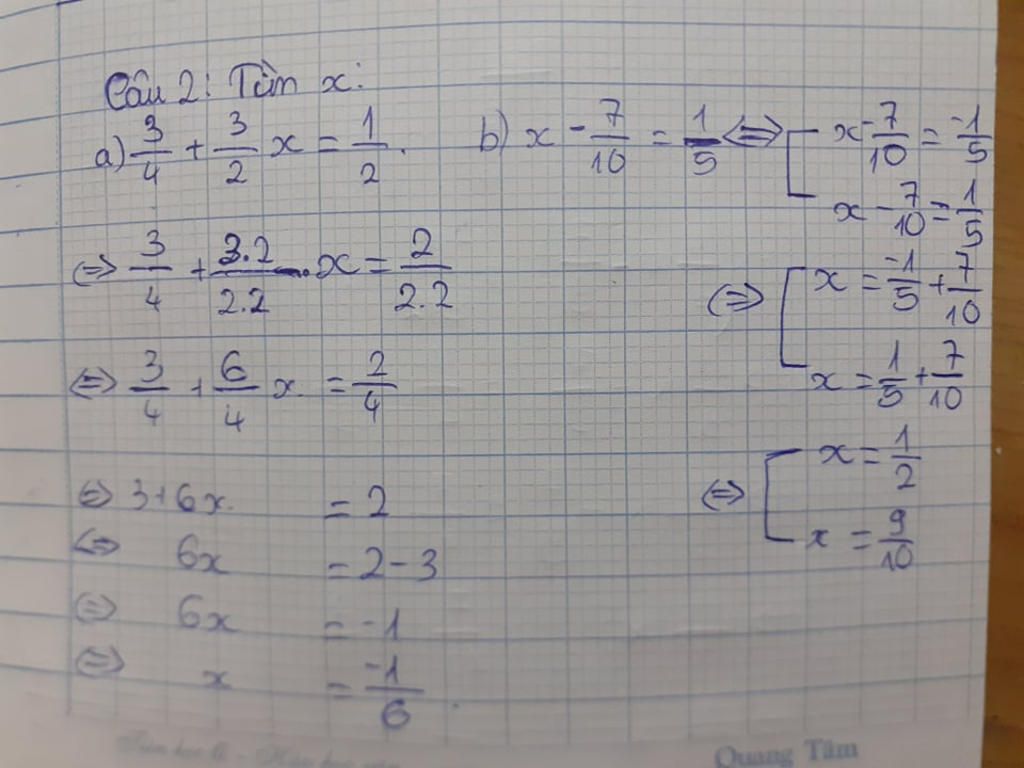 Câu 2: Tìm x:
a) 3/4 + 3/2 x = 1/2.
⇔ 3/4 + 3.2/2.2 . x = 2/2.2
⇔ 3/4 + 6/4 x = 2/4
⇔ 3+6x = 2
⇔ 6x = 2-3
⇔ 6x = -1
⇔ x = -1/6
b) x - 7/10 = 1/5 ⇔ [ x - 7/10 = -1/5
x - 7/10 = 1/5
⇔ [ x = -1/5 + 7/10
x = 1/5 + 7/10
⇔ [ x = 1/2
x = 9/10
Quang Tâm